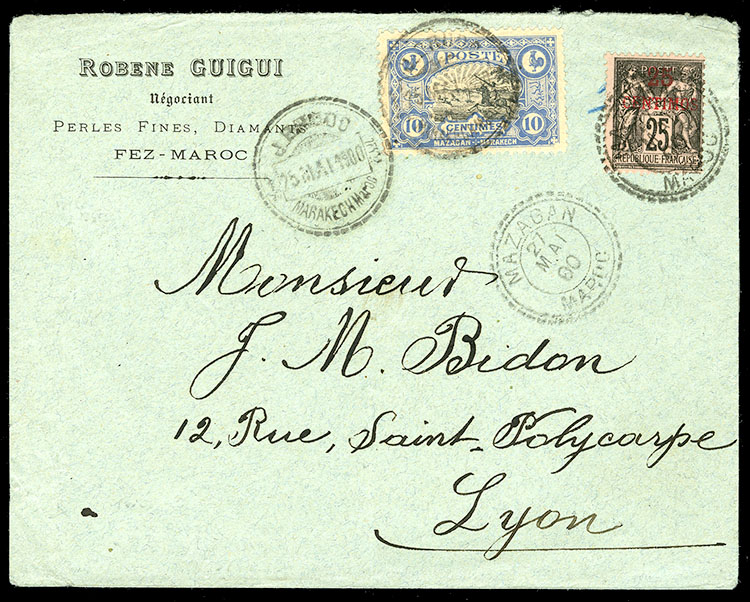 ROBENE GUIGUI
Négociant
PERLES FINES, DIAMANTS
FEZ-MAROC
25 MAI 1900
MARAKECH
POSTE
10 CENTIMES 10
MAZAGAN-MARAKECH
25
CENTIMOS
25
RÉPUBLIQUE FRANÇAISE
MAROC
MAZAGAN
27
MAI
00
MAROC
Monsieur
J. M. Bidon
12, Rue, Saint-Polycarpe
Lyon